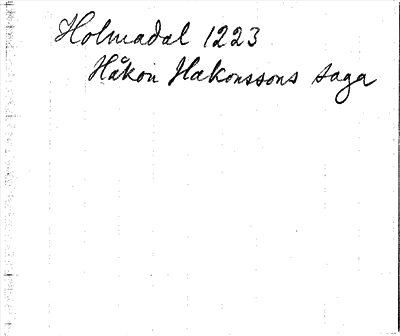 Holmadal 1223
Håkon Hakonssons saga